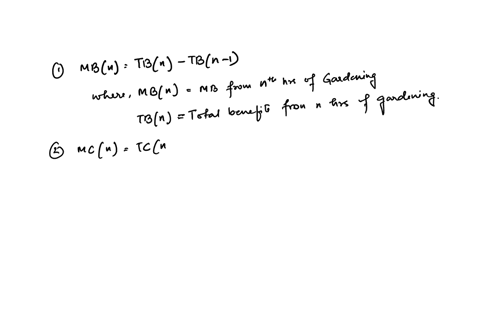 ① MB(n) = TB(n) - TB(n-1)
where, MB(n) = MB from nth hrs of Gardening
TB(n) = Total benefit from n hrs of gardening.
② MC(n) = TC(n